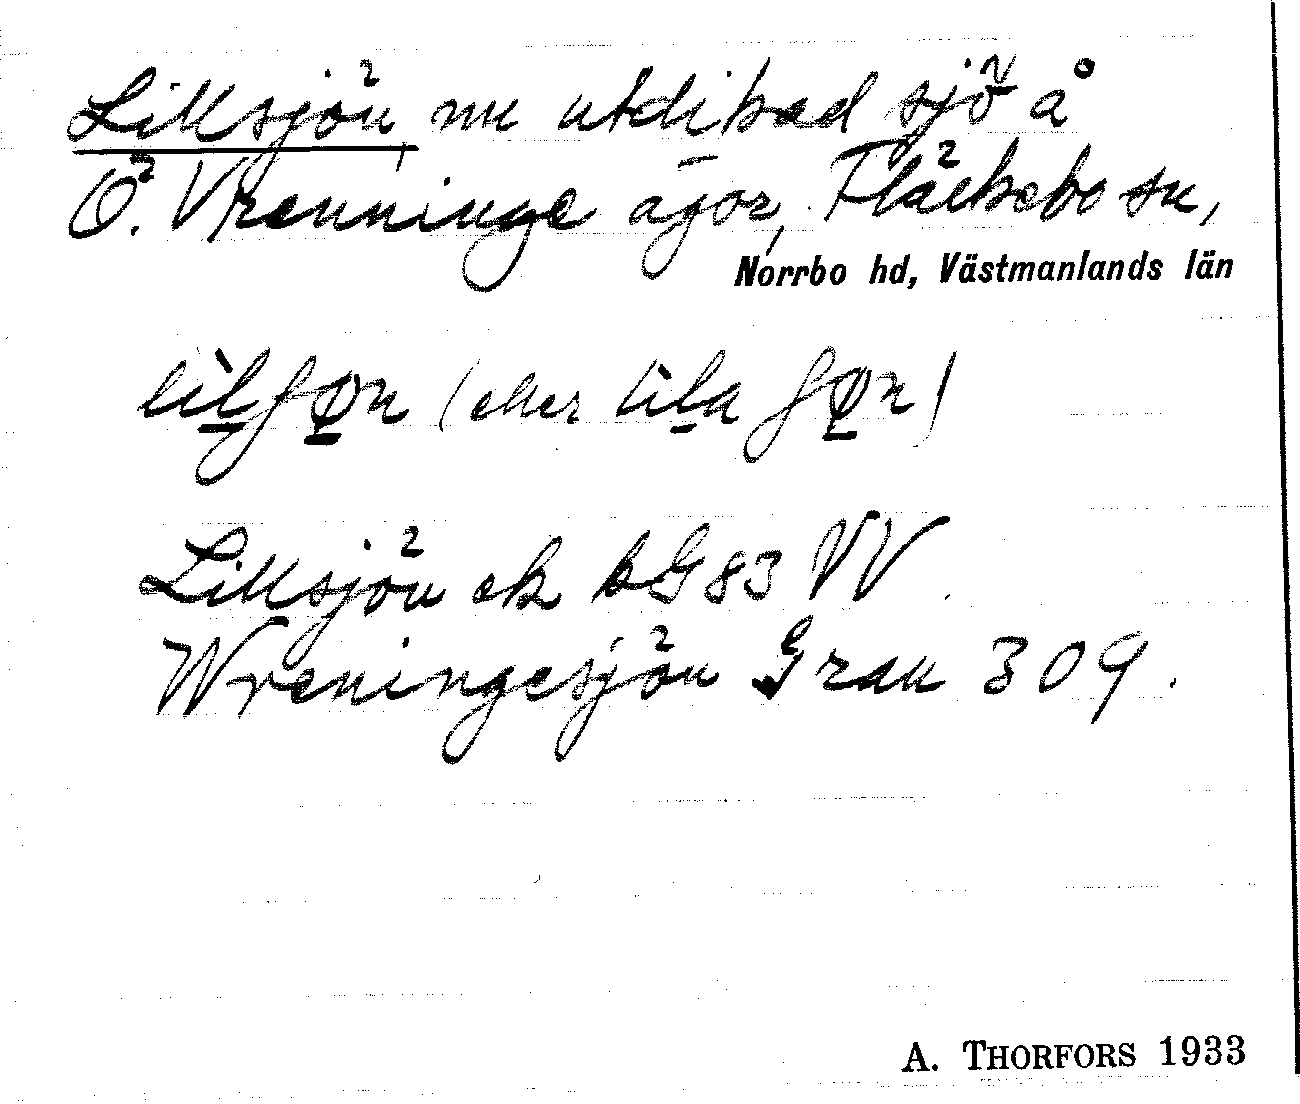 Lillsjön, nu utdikad sjö å
Ö. Vrenninge ägor, Fläckebo sn,
Norrbo hd, Västmanlands län
lìlʃøn (eller lìla ʃøn)
Lillsjön ek bG 83 VV
Wreningesjön Grau 309.
A. THORFORS 1933